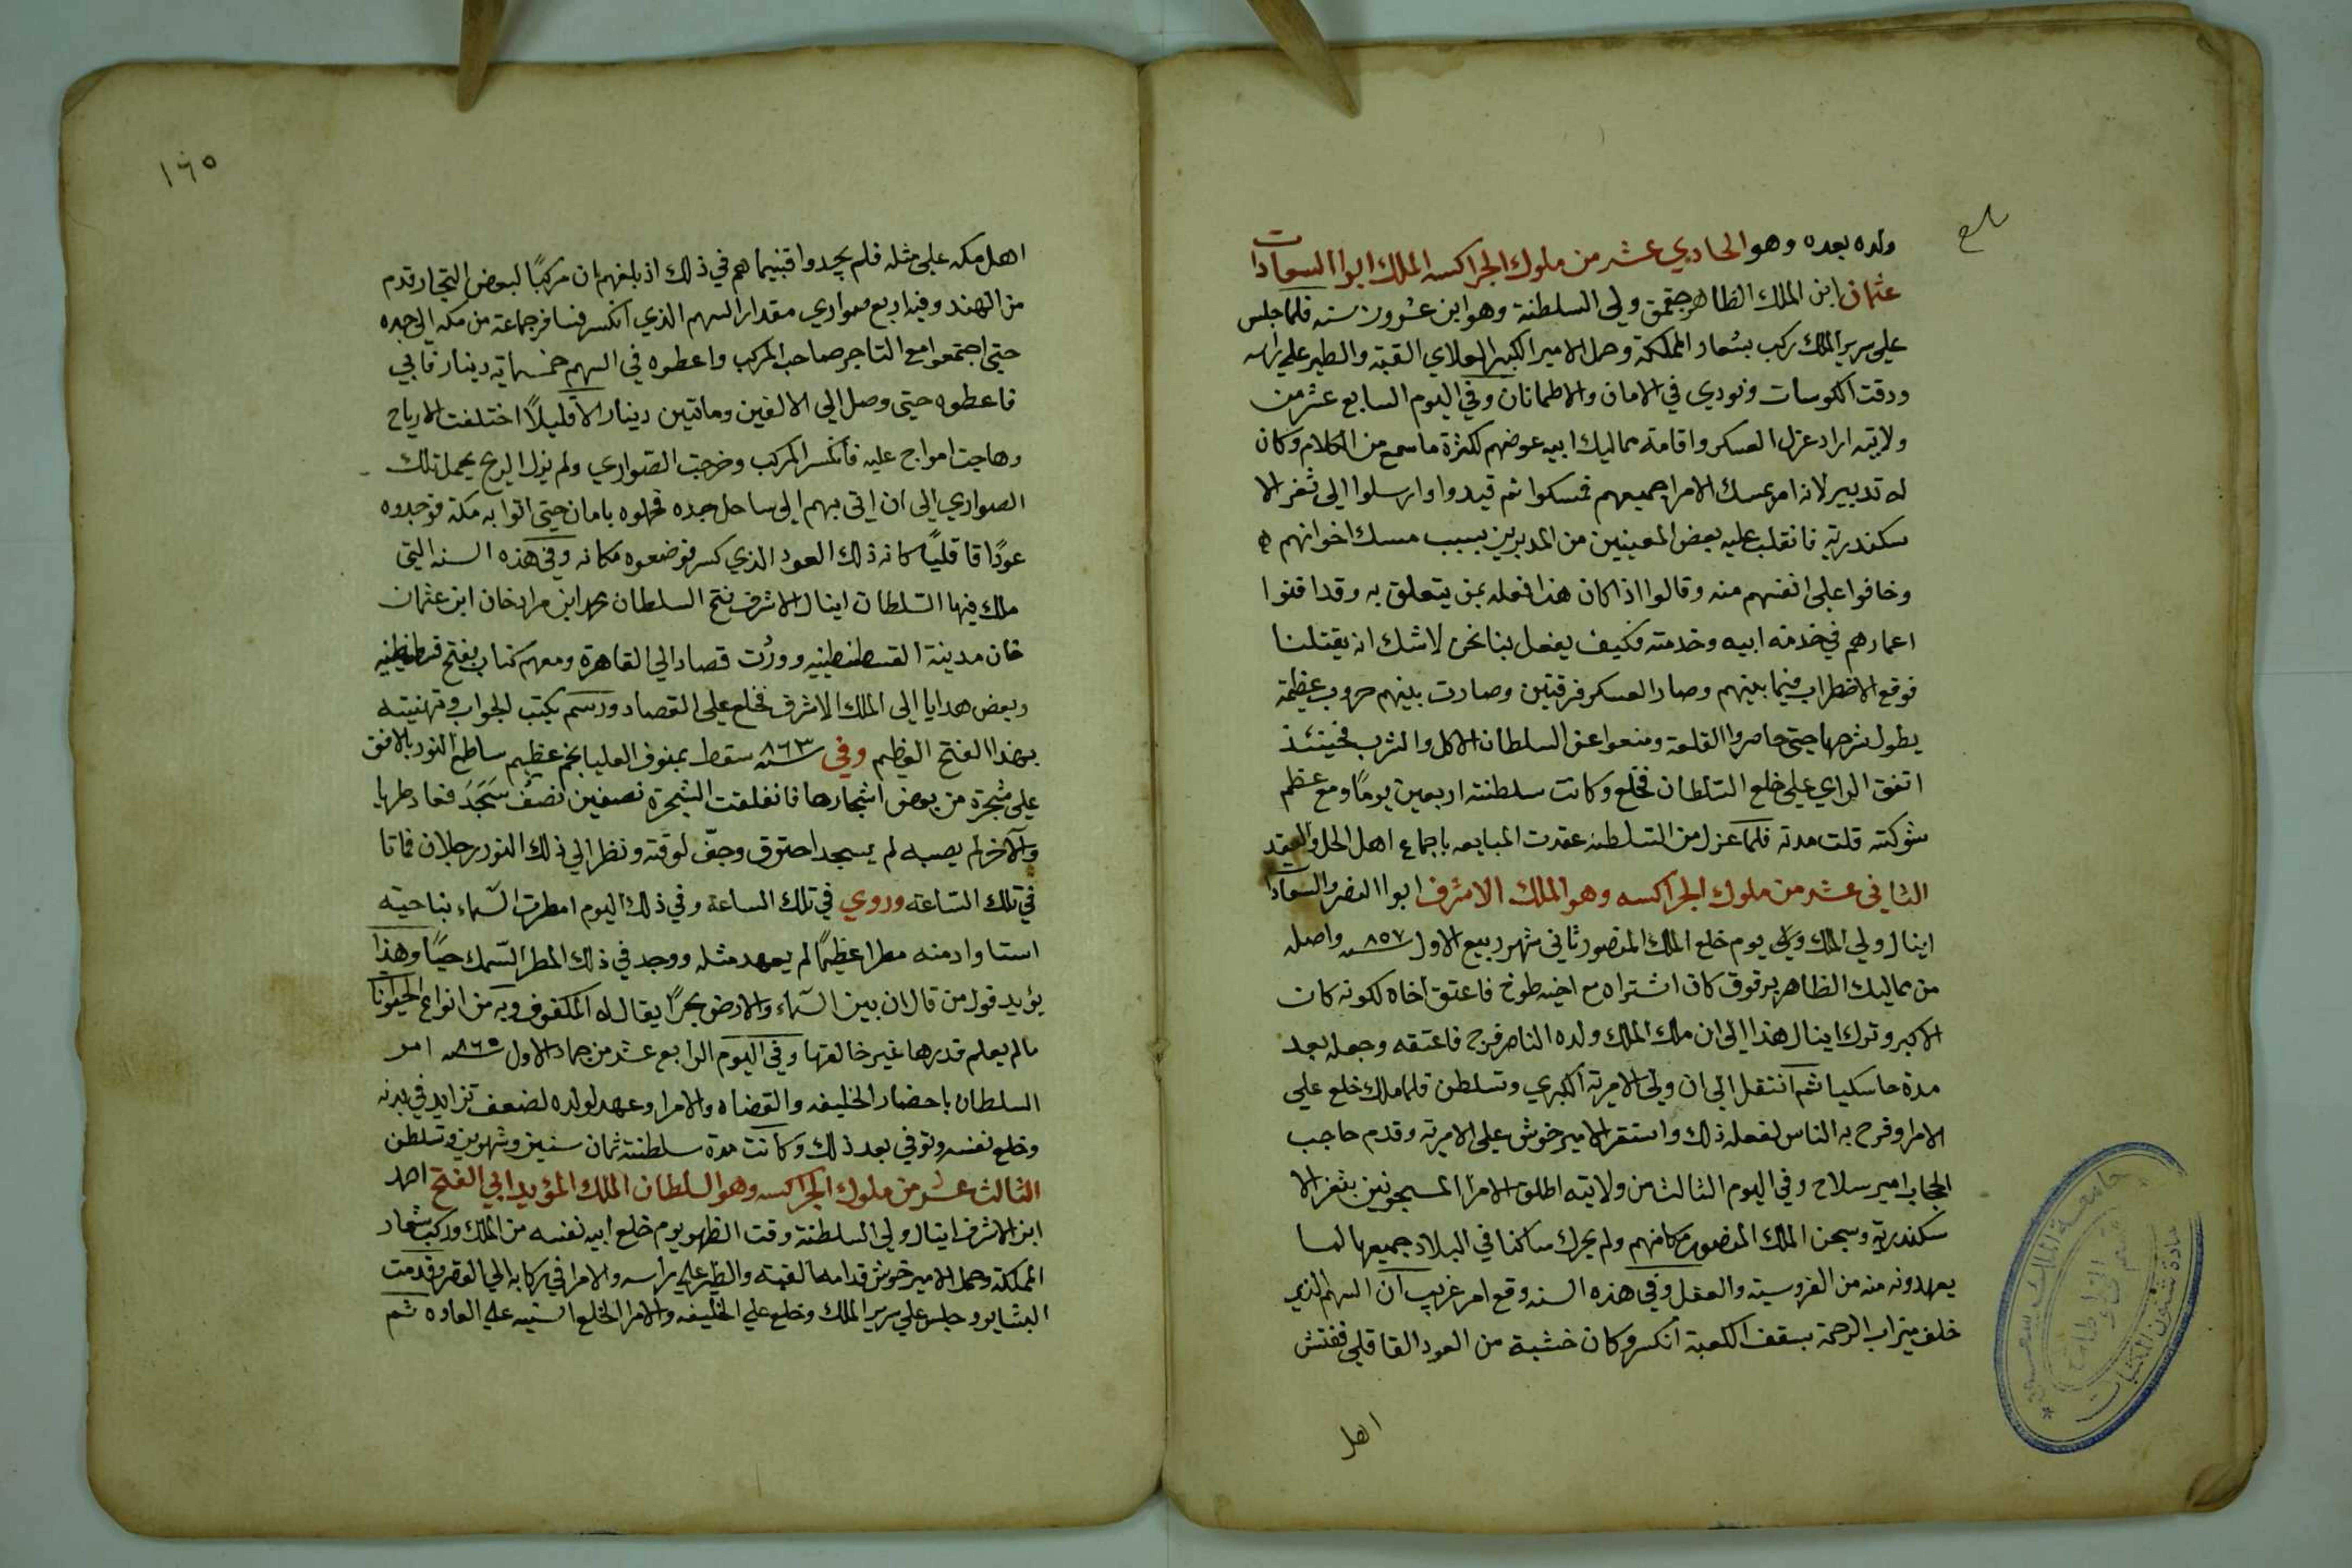 ولده بعده وهو الحادي عشر من ملوك الجراكسه الملك ابوا السعادات
عثمان ابن الملك الظاهر جقمق ولى السلطنة وهو ابن عشرون سنه فلما جلس
على سرير الملك ركب بشعار المملكة وحمل الامير الكبير العلاي القبة والطير على راسه
ودقت الكوسات ونودي في الامان والاطمانان وفي اليوم السابع عشر من
ولايته اراد عزل العسكر واقامة مماليك ابيه عوضهم لكثرة ما سمع من الكلام وكان
له تدبير لانه امر بمسك الامرا جميعهم فمسكوا ثم قيدوا وارسلوا الى ثغر الا
سكندرية فانقلب عليه بعض المعينين من المدبرين بسبب مسك اخوانهم
وخافوا على انفسهم منه وقالوا اذا كان هذا فعله بمن يتعلق به وقد افنوا
اعمارهم في خدمة ابيه وخدمته فكيف يفعل بنا نحن لا شك انه يقتلنا
فوقع الاضطراب فيما بينهم وصار العسكر فرقتين وصارت بينهم حروب عظيمة
يطول شرحها حتى حاصروا القلعة ومنعوا عن السلطان الاكل والشرب فحينئذ
اتفق الراي على خلع السلطان فخلع وكانت سلطنته اربعين يومًا ومع عظم
شوكته قلت مدته فلما عزل من السلطنه عقدت المبايعه باجماع اهل الحل والعقد
الثاني عشر من ملوك الجراكسه وهو الملك الاشرف ابوا النصر والسعادات
اينال ولي الملك يوم خلع الملك المنصور ثاني شهر ربيع الاول سنه ٨٥٧ واصله
من مماليك الظاهر برقوق كان اشتراه مع اخيه طوخ فاعتق اخاه لكونه كان
الاكبر وترك اينال هذا الى ان ملك الملك ولده الناصر فرج فاعتقه وجعله بعد
مدة خاسكيا ثم انتقل الى ان ولي الامرية الكبري وتسلطن فلما ملك خلع على
الامرا وفرح به الناس لفعله ذلك واستقر الامير خوش على الامرية وقدم حاجب
الحجاب امير سلاح وفي اليوم الثالث من ولايته اطلق الامرا المسجونين بثغر الا
سكندرية وسجن الملك المنصور مكانهم ولم يحرك ساكنا في البلاد جميعها لما
يعهدونه منه من الفروسية والعقل وفي هذه السنه وقع امر غريب ان السهم الذي
خلف ميزاب الرحمة بسقف الكعبة انكسر وكان خشبة من العود القاقلي ففتش
اهل
جامعة الملك سعود
عمادة شئون المكتبات
قسم المخطوطات
١٦٥
اهل مكه على مثله فلم يجدوا فبينما هم في ذلك اذ بلغهم ان مركبًا لبعض التجار قدم
من الهند وفيه اربع صواري مقدار السهم الذي انكسر فسافر جماعة من مكه الى جده
حتى اجتمعوا مع التاجر صاحب المركب واعطوه في السهم خمسماية دينار فابي
فاعطوه حتى وصل الى الالفين وماتين دينار الا قليلًا اختلفت الارياح
وهاجت امواج عليه فانكسر المركب وخرجت الصواري ولم يزل الريح يحمل تلك
الصواري الى ان اتى بهم الى ساحل جده فحملوه بامان حتى اتوا به مكة فوجدوه
عودًا قاقليًا كانه ذلك العود الذي كسر فوضعوه مكانه وفي هذه السنه التي
ملك فيها السلطان اينال الاشرف فتح السلطان محمد ابن مراد خان ابن عثمان
خان مدينة القسطنطينيه ووردت قصاد الى القاهرة ومعهم كتاب بفتح قسطنطينيه
وبعض هدايا الى الملك الاشرف فخلع على القصاد ورسم بكتب الجواب وتهنيته
بهذا الفتح العظيم وفي سنه ٨٦٣ سقط بمنوف العليا نجم عظيم ساطع النور بالافق
على شجرة من بعض اشجارها فانفلقت الشجرة نصفين نصف سَجَدَ فعاد طريا
والآخر لم يصبه لم يسجد احترق وجفّ لوقته ونظر الى ذلك النور رجلان فماتا
في تلك الساعه وروي في تلك الساعة وفي ذلك اليوم امطرت السماء بناحية
استاوادمنه مطرا عظيمًا لم يعهد مثله ووجد في ذلك المطر السمك حيًا وهذا
يؤيد قول من قال ان بين السماء والارض بحرًا يقال له المكفوف وبه من انواع الحيوانا
ما لم يعلم قدرها غير خالقها وفي اليوم الرابع عشر من جماد الاول سنه ٨٦٥ امر
السلطان باحضار الخليفه والقضاه والامرا وعهد لولده لضعف تزايد في بدنه
وخلع نفسه وتوفي بعد ذلك وكانت مدة سلطنته ثمان سنين وشهرين وتسلطن
الثالث عشر من ملوك الجراكسه وهو السلطان الملك المؤيد ابي الفتح احمد
ابن الاشرف اينال ولي السلطنة وقت الظهر يوم خلع ابيه نفسه من الملك وركب بشعار
المملكة وحمل الامير خوش قدامه القبه والطير على راسه والامرا في ركابه الى القصر وقدمت
البشاير وجلس على سرير الملك وخلع على الخليفه والامرا الخلع السنيه على العاده ثم